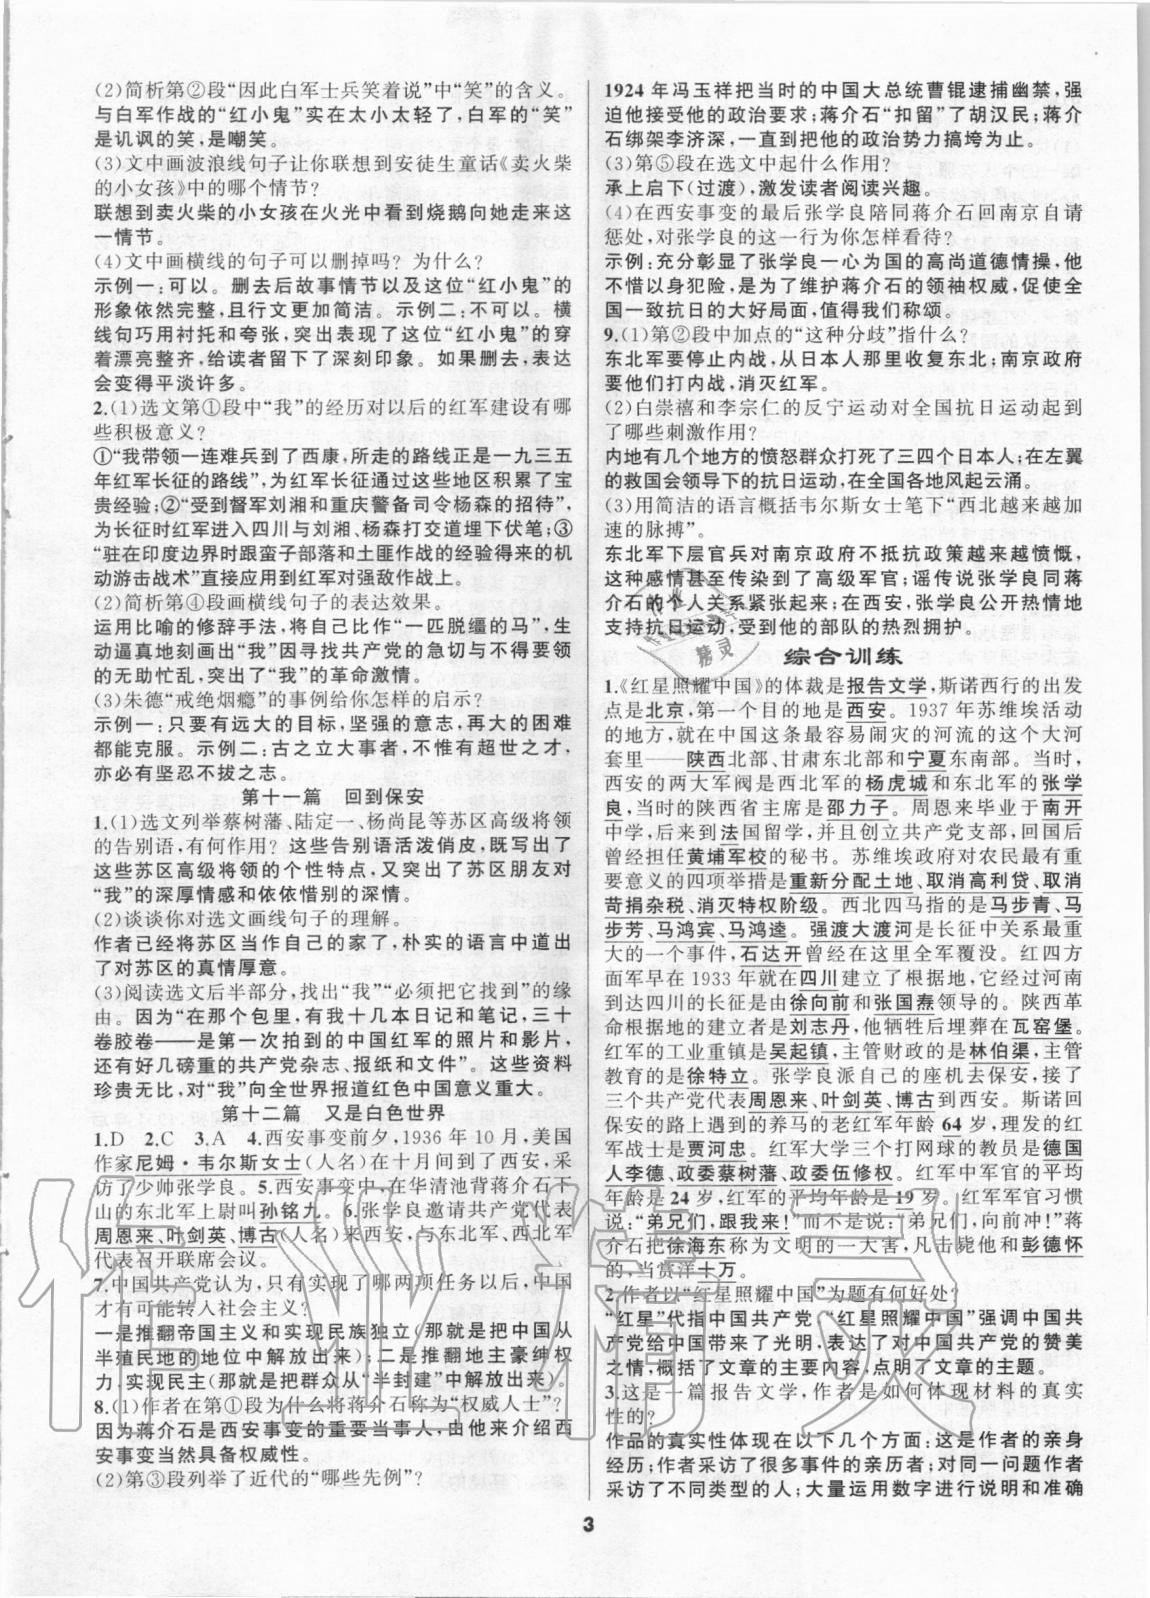 (2)简析第②段“因此白军士兵笑着说”中“笑”的含义。
与白军作战的“红小鬼”实在太小太轻了,白军的“笑”
是讥讽的笑,是嘲笑。
(3)文中画波浪线句子让你联想到安徒生童话《卖火柴
的小女孩》中的哪个情节?
联想到卖火柴的小女孩在火光中看到烧鹅向她走来这
一情节。
(4)文中画横线的句子可以删掉吗?为什么?
示例一:可以。删去后故事情节以及这位“红小鬼”的
形象依然完整,且行文更加简洁。示例二:不可以。横
线句巧用衬托和夸张,突出表现了这位“红小鬼”的穿
着漂亮整齐,给读者留下了深刻印象。如果删去,表达
会变得平淡许多。
2.(1)选文第①段中“我”的经历对以后的红军建设有哪
些积极意义?
①“我带领一连难兵到了西康,所走的路线正是一九三五
年红军长征的路线”,为红军长征通过这些地区积累了宝
贵经验;②“受到督军刘湘和重庆警备司令杨森的招待”,
为长征时红军进入四川与刘湘、杨森打交道埋下伏笔;③
“驻在印度边界时跟蛮子部落和土匪作战的经验得来的机
动游击战术”直接应用到红军对强敌作战上。
(2)简析第④段画横线句子的表达效果。
运用比喻的修辞手法,将自己比作“一匹脱缰的马”,生
动逼真地刻画出“我”因寻找共产党的急切与不得要领
的无助忙乱,突出了“我”的革命激情。
(3)朱德“戒绝烟瘾”的事例给你怎样的启示?
示例一:只要有远大的目标,坚强的意志,再大的困难
都能克服。示例二:古之立大事者,不惟有超世之才,
亦必有坚忍不拔之志。
第十一篇 回到保安
1.(1)选文列举蔡树藩、陆定一、杨尚昆等苏区高级将领
的告别语,有何作用?这些告别语活泼俏皮,既写出了
这些苏区高级将领的个性特点,又写出了苏区朋友对
“我”的深厚情感和依依惜别的深情。
(2)谈谈你对选文画线句子的理解。
作者已经将苏区当作自己的家了,朴实的语言中道出
了对苏区的真情厚意。
(3)阅读选文后半部分,找出“我”“必须把它找到”的缘
由。因为“在那个包里,有我十几本日记和笔记,三十
卷胶卷——是第一次拍到的中国红军的照片和影片,
还有好几磅重的共产党杂志、报纸和文件”。这些资料
珍贵无比,对“我”向全世界报道红色中国意义重大。
第十二篇 又是白色世界
1.D 2.C 3.A 4.西安事变前夕,1936年10月,美国
作家尼姆·韦尔斯女士(人名)在十月间到了西安,采
访了少帅张学良。5.西安事变中,在华清池背蒋介石下
山的东北军上尉叫孙铭九。6.张学良邀请共产党代表
周恩来、叶剑英、博古(人名)来西安,与东北军、西北军
代表召开联席会议。
7.中国共产党认为,只有实现了哪两项任务以后,中国
才有可能转入社会主义?
一是推翻帝国主义和实现民族独立(那就是把中国从
半殖民地的地位中解放出来);二是推翻地主豪绅权
力,实现民主(那就是把群众从“半封建”中解放出来)。
8.(1)作者在第①段为什么将蒋介石称为“权威人士”?
因为蒋介石是西安事变的重要当事人,由他来介绍西
安事变当然具备权威性。
(2)第③段列举了近代的“哪些先例”?
1924年冯玉祥把当时的中国大总统曹锟逮捕幽禁,强
迫他接受他的政治要求;蒋介石“扣留”了胡汉民;蒋介
石绑架李济深,一直到把他的政治势力搞垮为止。
(3)第⑤段在选文中起什么作用?
承上启下(过渡),激发读者阅读兴趣。
(4)在西安事变的最后张学良陪同蒋介石回南京自请
惩处,对张学良的这一行为你怎样看待?
示例:充分彰显了张学良一心为国的高尚道德情操,他
不惜以身犯险,是为了维护蒋介石的领袖权威,促使全
国一致抗日的大好局面,值得我们称颂。
9.(1)第②段中加点的“这种分歧”指什么?
东北军要停止内战,从日本人那里收复东北;南京政府
要他们打内战,消灭红军。
(2)白崇禧和李宗仁的反宁运动对全国抗日运动起到
了哪些刺激作用?
内地有几个地方的愤怒群众打死了三四个日本人;在左翼
的救国会领导下的抗日运动,在全国各地风起云涌。
(3)用简洁的语言概括韦尔斯女士笔下“西北越来越加
速的脉搏”。
东北军下层官兵对南京政府不抵抗政策越来越愤慨,
这种感情甚至传染到了高级军官;谣传说张学良同蒋
介石的个人关系紧张起来;在西安,张学良公开热情地
支持抗日运动,受到他的部队的热烈拥护。
综合训练
1.《红星照耀中国》的体裁是报告文学,斯诺西行的出发
点是北京,第一个目的地是西安。1937年苏维埃活动
的地方,就在中国这条最容易闹灾的河流的这个大河
套里——陕西北部、甘肃东北部和宁夏东南部。当时,
西安的两大军阀是西北军的杨虎城和东北军的张学
良,当时的陕西省主席是邵力子。周恩来毕业于南开
中学,后来到法国留学,并且创立共产党支部,回国后
曾经担任黄埔军校的秘书。苏维埃政府对农民最有重
要意义的四项举措是重新分配土地、取消高利贷、取消
苛捐杂税、消灭特权阶级。西北四马指的是马步青、马
步芳、马鸿宾、马鸿逵。强渡大渡河是长征中关系最重
大的一个事件,石达开曾经在这里全军覆没。红四方
面军早在1933年就在四川建立了根据地,它经过河南
到达四川的长征是由徐向前和张国焘领导的。陕西革
命根据地的建立者是刘志丹,他牺牲后埋葬在瓦窑堡。
红军的工业重镇是吴起镇,主管财政的是林伯渠,主管
教育的是徐特立。张学良派自己的座机去保安,接了
三个共产党代表周恩来、叶剑英、博古到西安。斯诺回
保安的路上遇到的养马的老红军年龄64岁,理发的红
军战士是贾河忠。红军大学三个打网球的教员是德国
人李德、政委蔡树藩、政委伍修权。红军中军官的平均
年龄是24岁,红军的平均年龄是19岁。红军军官习惯
说:“弟兄们,跟我来!”而不是说:“弟兄们,向前冲!”蒋
介石把徐海东称为文明的一大害,凡击毙他和彭德怀
的,当赏洋十万。
2.作者以“红星照耀中国”为题有何好处?
“红星”代指中国共产党,“红星照耀中国”强调中国共
产党给中国带来了光明,表达了对中国共产党的赞美
之情,概括了文章的主要内容,点明了文章的主题。
3.这是一篇报告文学,作者是如何体现材料的真实
性的?
作品的真实性体现在以下几个方面:这是作者的亲身
经历;作者采访了很多事件的亲历者;对同一问题作者
采访了不同类型的人;大量运用数字进行说明和准确
3
作业精灵